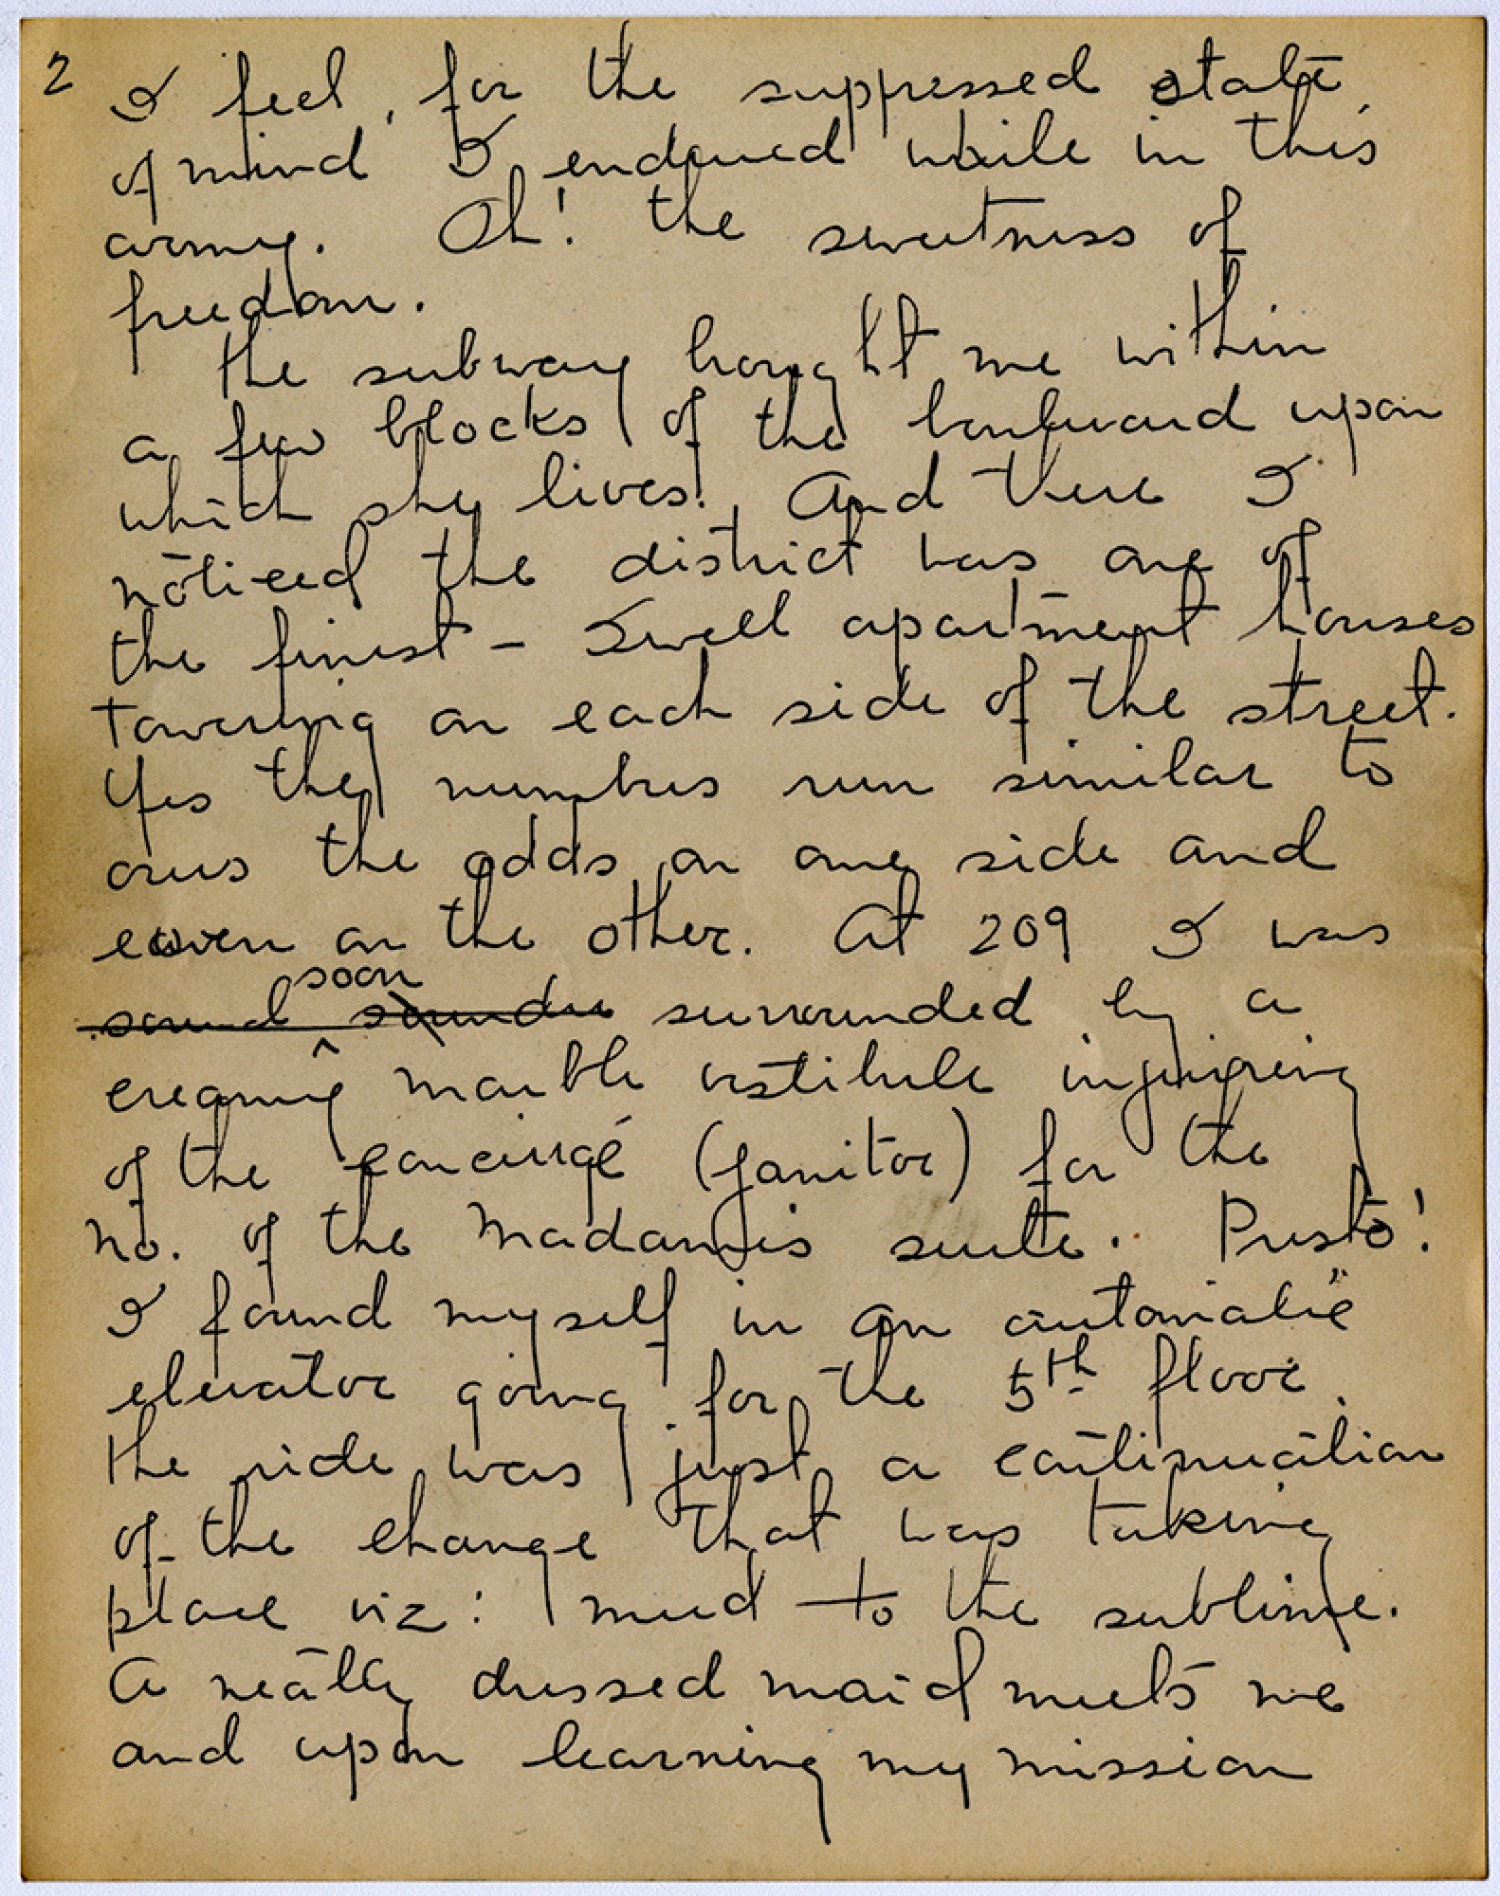 2
I feel, for the suppressed state
of mind I endured while in this
army. Oh! the sweetness of
freedom.
The subway brought me within
a few blocks of the boulevard upon
which she lives. And there I
noticed the district was one of
the finest – Swell apartment houses
towering on each side of the street.
Yes the numbers run similar to
ours the odds on one side and
even on the other. At 209 I was
sound soon sounder surrounded by a
creamy marble vestibule inquiring
of the conciergé (janitor) for the
no. of the Madam's suite. Presto!
I found myself in an automatic
elevator going for the 5th floor.
The ride was just a continuation
of the change that was taking
place viz: mud to the sublime.
A neatly dressed maid meets me
and upon learning my mission